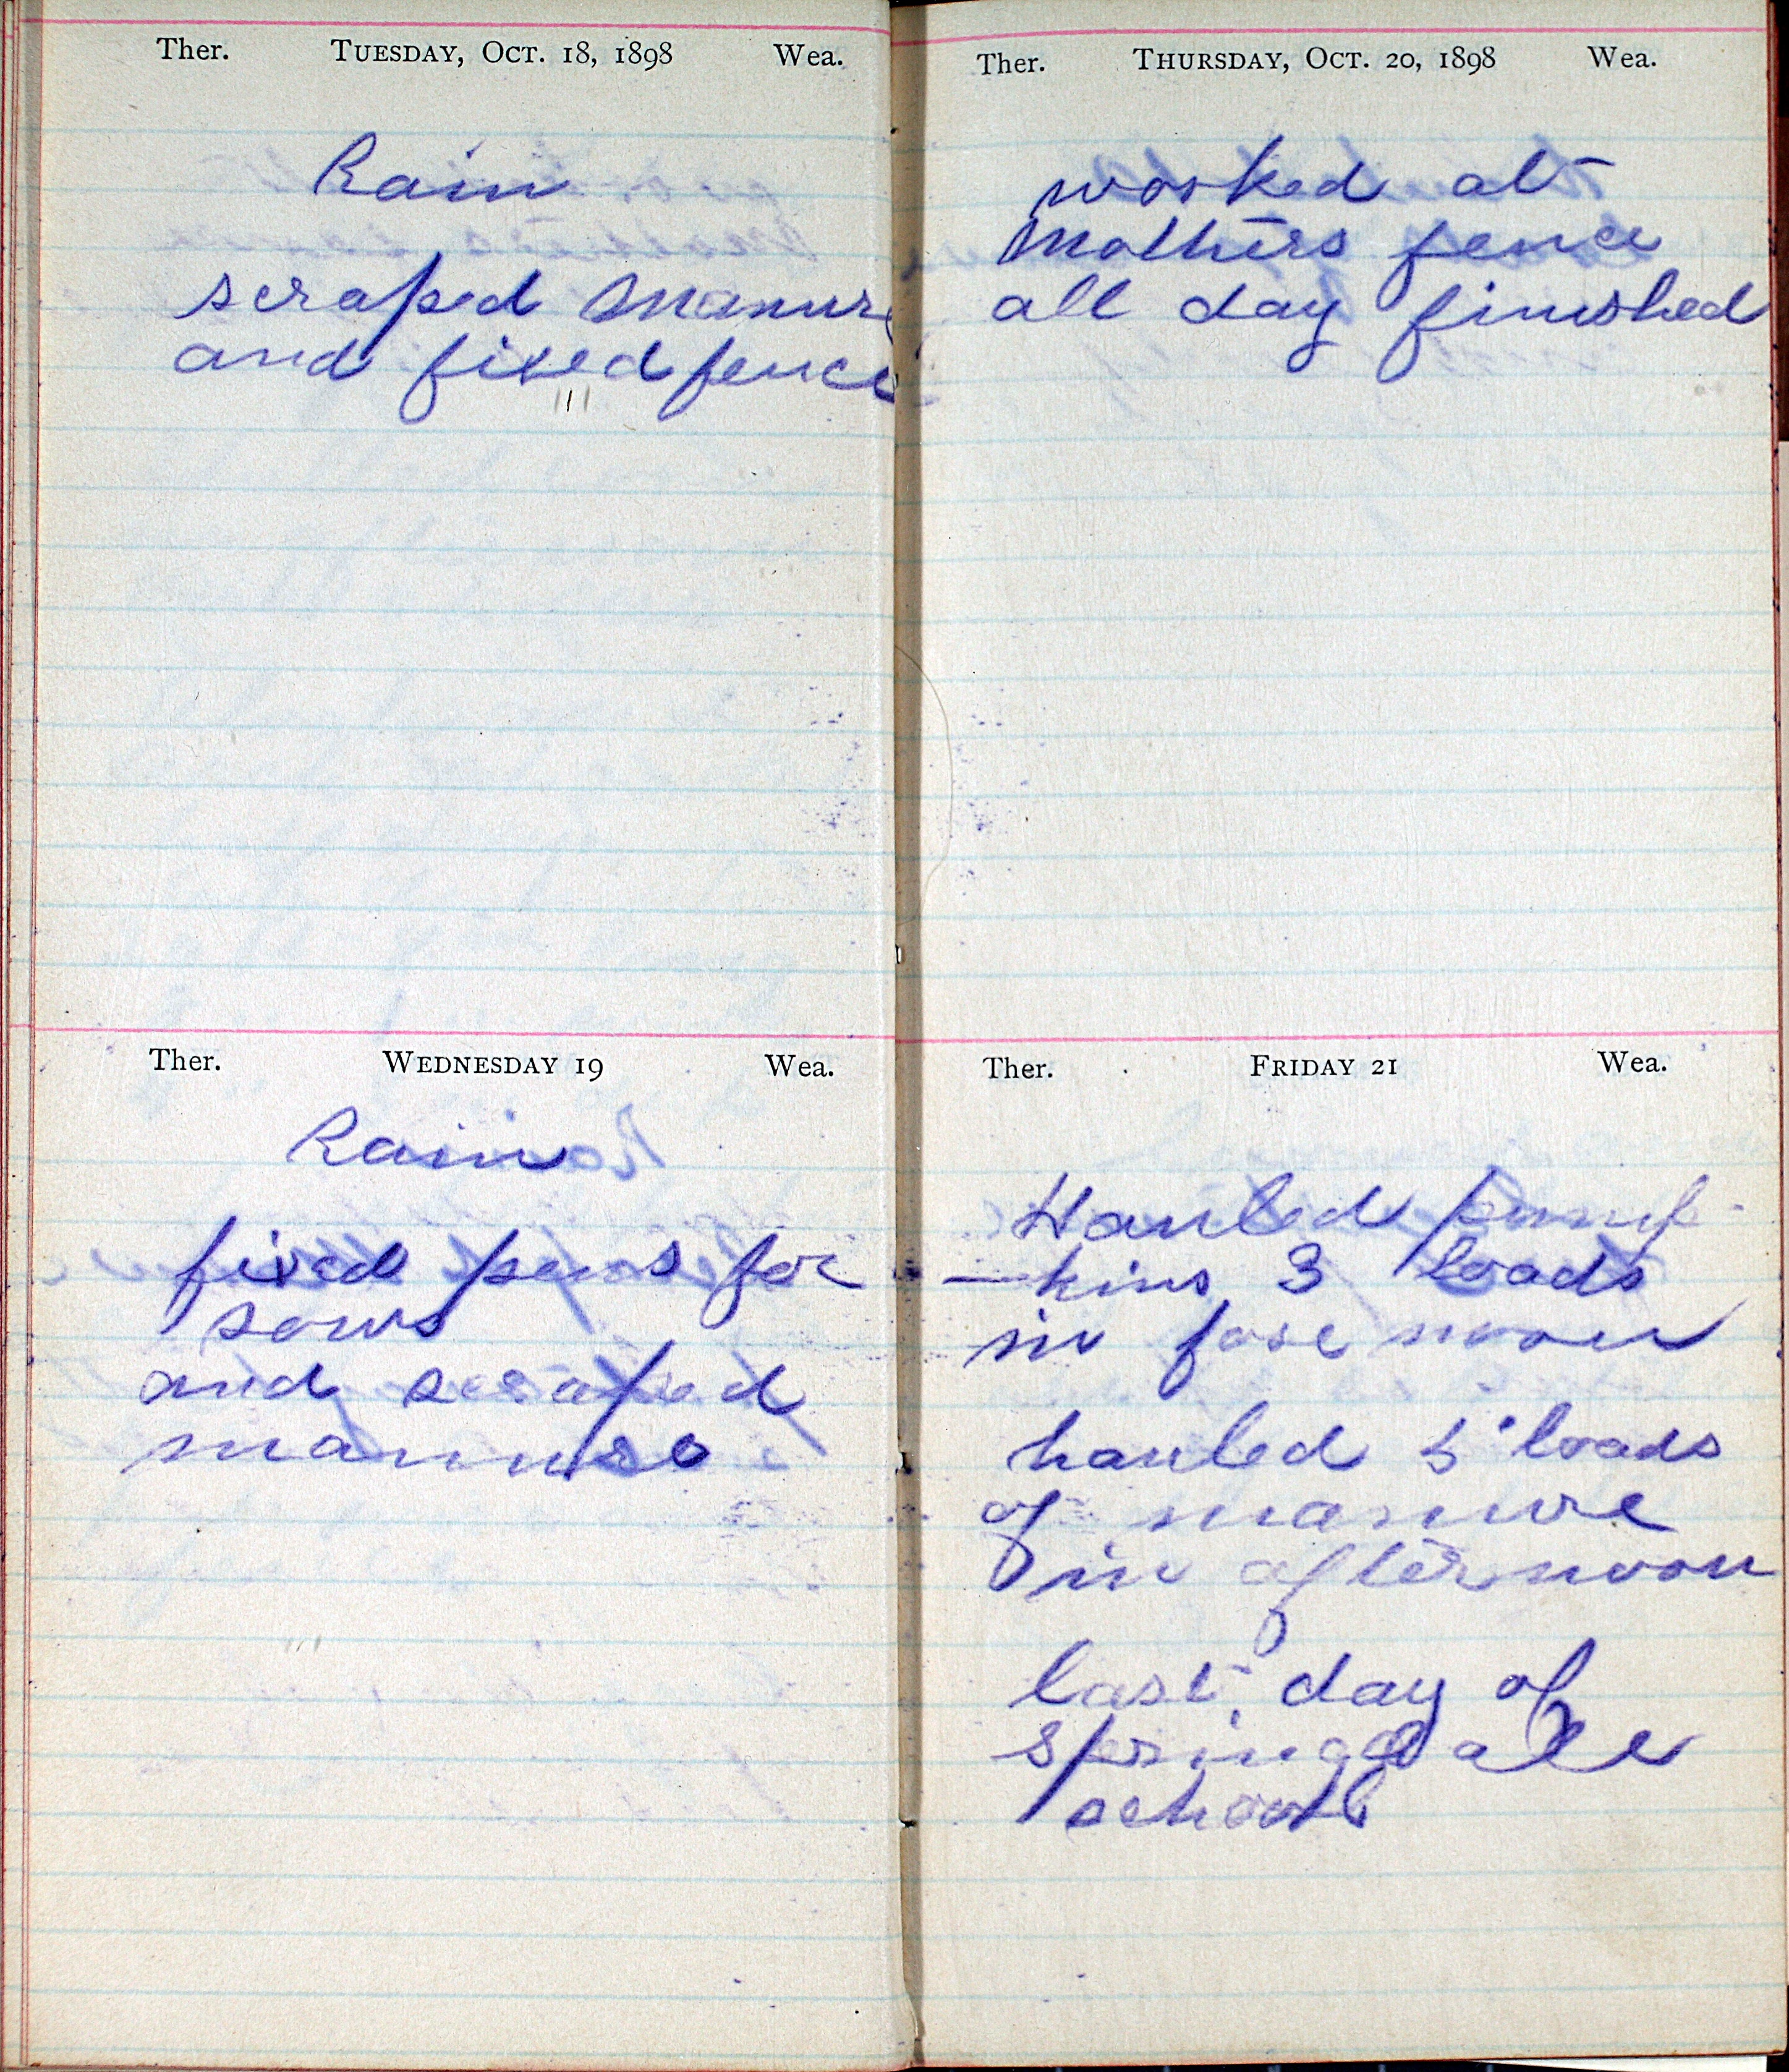 Ther. TUESDAY, OCT. 18, 1898 Wea.
Rain
scraped manure
and fixed fence
Ther. WEDNESDAY 19 Wea.
Rain
fixed pens for
sows
and scraped
manure
Ther. THURSDAY, OCT. 20, 1898 Wea.
worked at
Mothers fence
all day finished
Ther. FRIDAY 21 Wea.
Hauled pump-
-kins 3 loads
in fore noon
hauled 5 loads
of manure
in afternoon
last day of
springdale
school